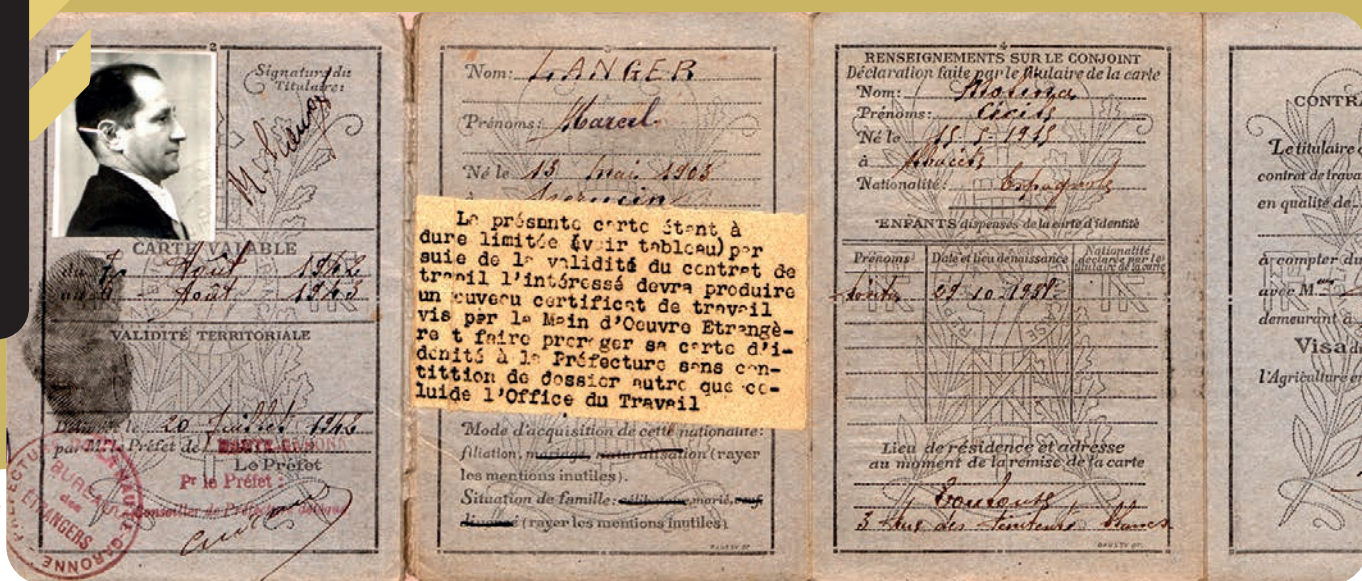 2
Signature du
Titulaire:
M. Langer
CARTE VALABLE
du 7 Août 1942
au 6 Août 1943
VALIDITÉ TERRITORIALE
Délivré le 20 Juillet 1942
par M. le Préfet de
Le Préfet
Pr le Préfet :
Conseiller de Préfecture délégué
PRÉFECTURE DE LA HAUTE-GARONNE
BUREAU
des
ÉTRANGERS
3
Nom: LANGER
Prénoms: Marcel
Né le 13 mai 1903
à
La présente carte étant à
dure limitée (voir tableau) par
suie de la validité du contrat de
travail l'intéressé devra produire
un ouveau certificat de travail
vis par la Main d'Oeuvre Etrangè-
re t faire proroger sa carte d'i-
denité à la Préfecture sans con-
titition de dossier autre que ce-
luide l'Office du Travail
Mode d'acquisition de cette nationalité:
filiation, mariage, naturalisation (rayer
les mentions inutiles).
Situation de famille: célibataire, marié, veuf
divorcé (rayer les mentions inutiles)
4
RENSEIGNEMENTS SUR LE CONJOINT
Déclaration faite par le titulaire de la carte
Nom:
Prénoms: Cécile
Né le 15 5 1915
à
Nationalité: Espagnole
ENFANTS dispensés de la carte d'identité
Prénoms Date et lieu de naissance Nationalité
déclarée par le
titulaire de la carte
29 10
Lieu de résidence et adresse
au moment de la remise de la carte
Toulouse
3 rue des Pénitents Blancs
CONTRA
Le titulaire d
contrat de trava
en qualité de
à compter du
avec M.
demeurant à
Visa de
l'Agriculture en